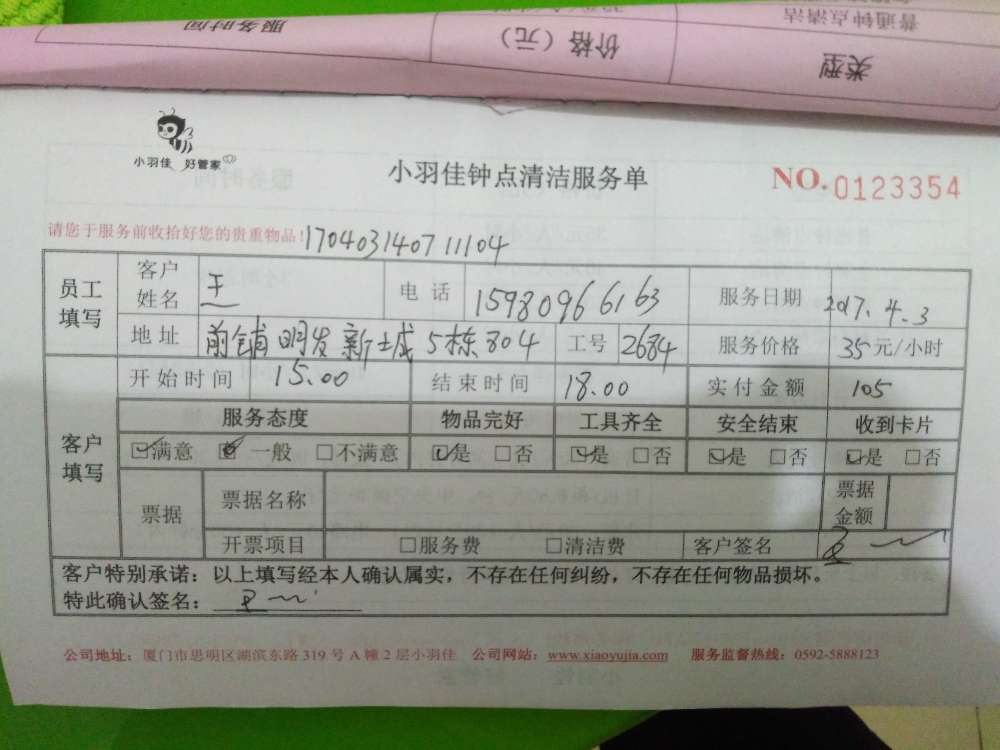 服务时间 价格（元） 类型
普通钟点清洁
小羽佳 好管家
小羽佳钟点清洁服务单
NO.0123354
请您于服务前收拾好您的贵重物品!
170403140711104
员工填写 客户姓名 王 电话 15980966163 服务日期 2017.4.3
地址 前铺明发新城5栋804 工号 2684 服务价格 35元/小时
开始时间 15.00 结束时间 18.00 实付金额 105
客户填写 服务态度 物品完好 工具齐全 安全结束 收到卡片
☑满意 ☑一般 □不满意 ☑是 □否 ☑是 □否 ☑是 □否 ☑是 □否
票据 票据名称 票据金额
开票项目 □服务费 □清洁费 客户签名
客户特别承诺：以上填写经本人确认属实，不存在任何纠纷，不存在任何物品损坏。
特此确认签名：
公司地址：厦门市思明区湖滨东路319号A幢2层小羽佳 公司网站：www.xiaoyujia.com 服务监督热线：0592-5888123